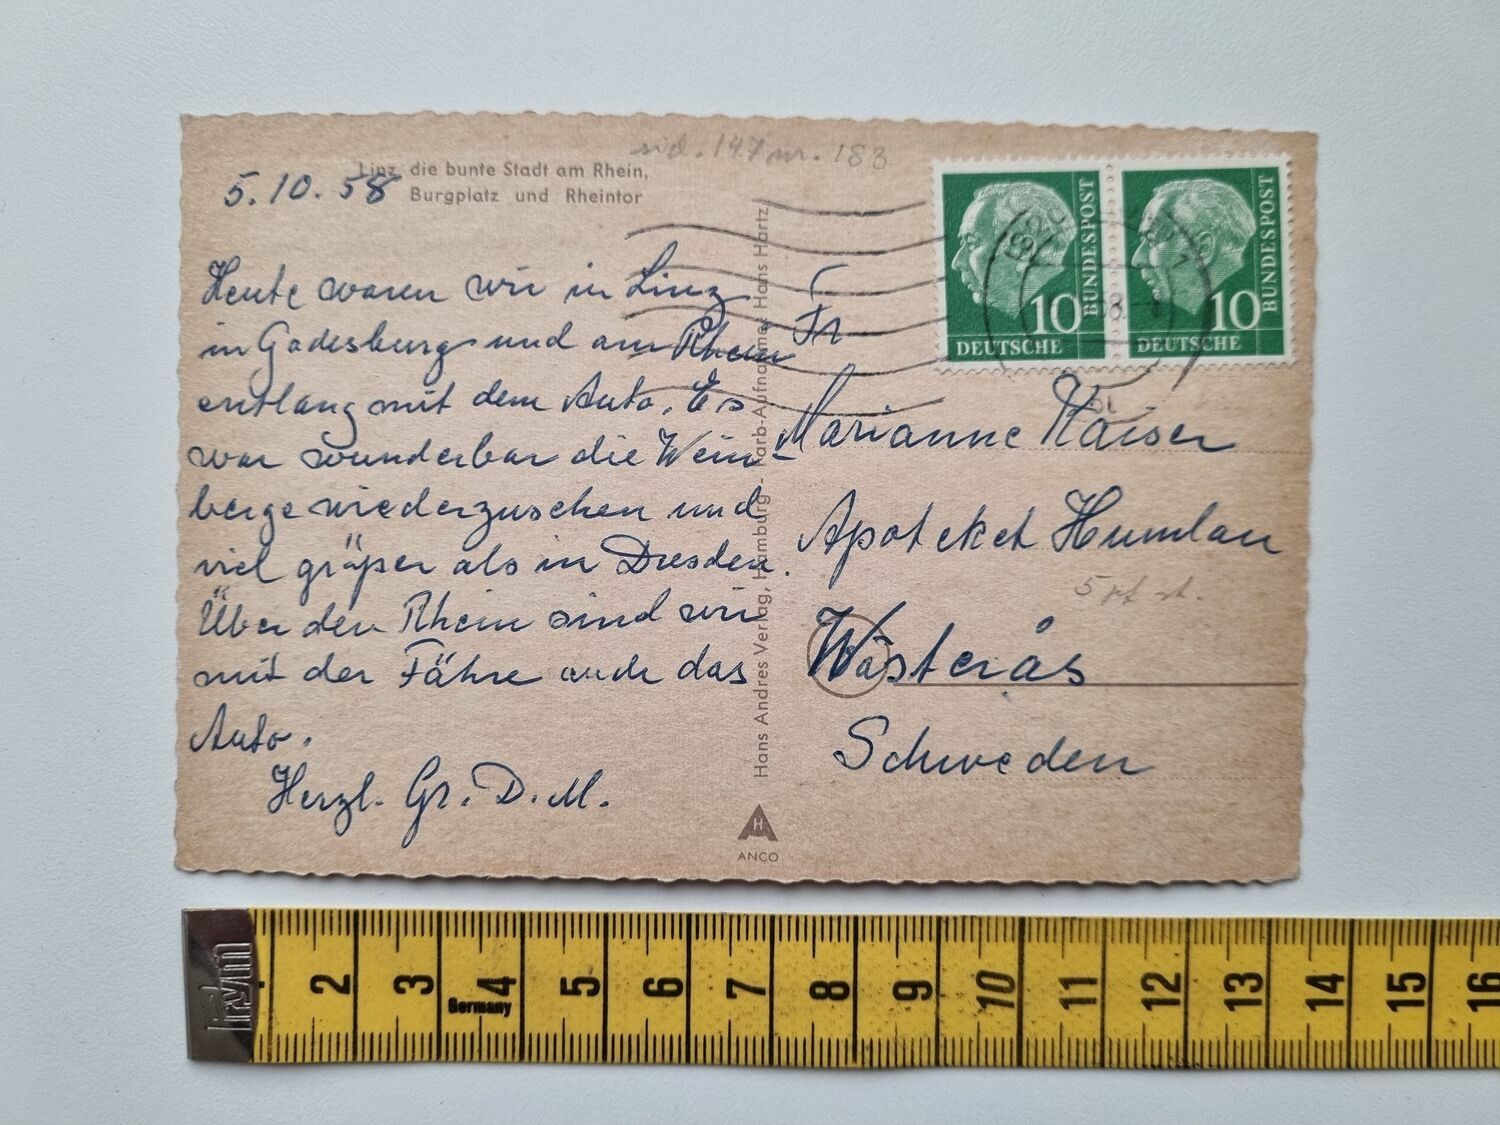 sid. 147 nr. 183
Linz, die bunte Stadt am Rhein,
Burgplatz und Rheintor
5.10.58
Heute waren wir in Linz
in Godesburg und am Rhein
entlang mit dem Auto. Es
war wunderbar die Wein-
berge wiederzusehen und
viel größer als in Dresden.
Über den Rhein sind wir
mit der Fähre auch das
Auto.
Herzl. Gr. D. M.
Hans Andres Verlag, Hamburg - Farb-Aufnahme: Hans Hartz
H
ANCO
10
DEUTSCHE
BUNDESPOST
10
DEUTSCHE
BUNDESPOST
Fr
Marianne Kaiser
Apoteket Humlan
Wästerås
Schweden
trym
Germany
2 3 4 5 6 7 8 9 10 11 12 13 14 15 16